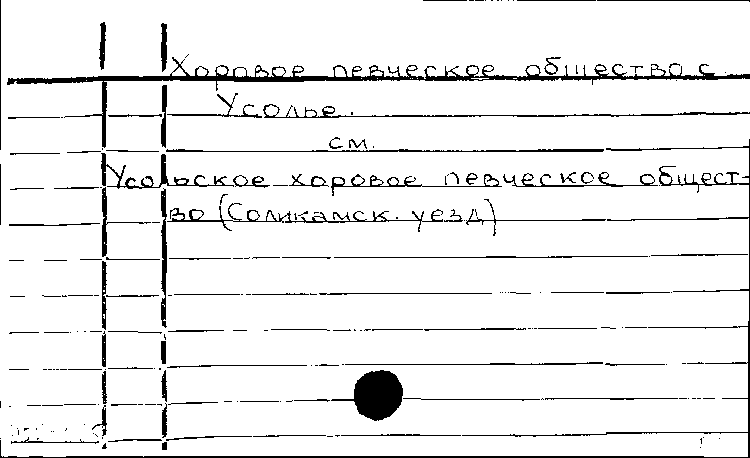 Хоровое певческое общество с.
Усолье.
см.
Усольское хоровое певческое общест-
во (Соликамск. уезд)